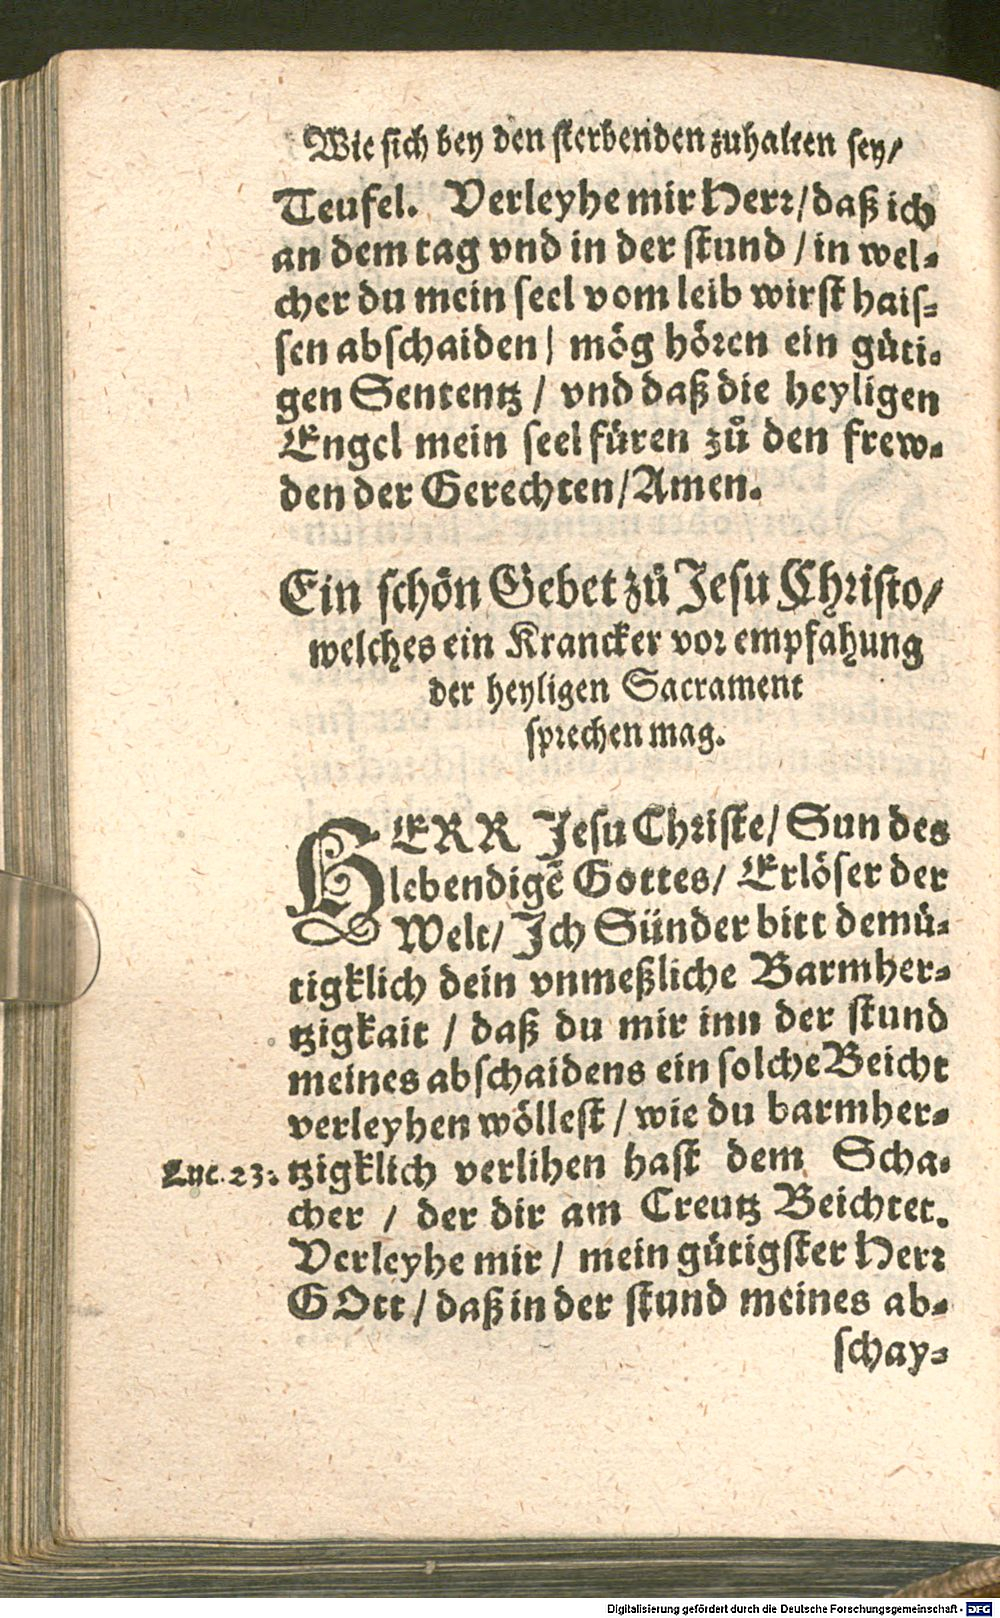 Wie sich bey den sterbenden zuhalten sey/
Teufel. Verleyhe mir Herr/daß ich
an dem tag vnd in der stund / in wel⸗
cher du mein seel vom leib wirst hais⸗
sen abschaiden/ mög hören ein güti⸗
gen Sententz / vnd daß die heyligen
Engel mein seel füren zů den frew⸗
den der Gerechten/Amen.
Ein schön Gebet zů Jesu Christo/
welches ein Krancker vor empfahung
der heyligen Sacrament
sprechen mag.
HERR Jesu Christe/ Sun des
lebendigẽ Gottes/ Erlöser der
Welt/ Ich Sünder bitt demü⸗
tigklich dein vnmeßliche Barmher⸗
tzigkait / daß du mir inn der stund
meines abschaidens ein solche Beicht
verleyhen wöllest / wie du barmher⸗
Luc. 23. tzigklich verlihen hast dem Scha⸗
cher / der dir am Creutz Beichtet.
Verleyhe mir / mein gütigster Herr
GOtt / daß in der stund meines ab⸗
schay⸗
Digitalisierung gefördert durch die Deutsche Forschungsgemeinschaft - DFG